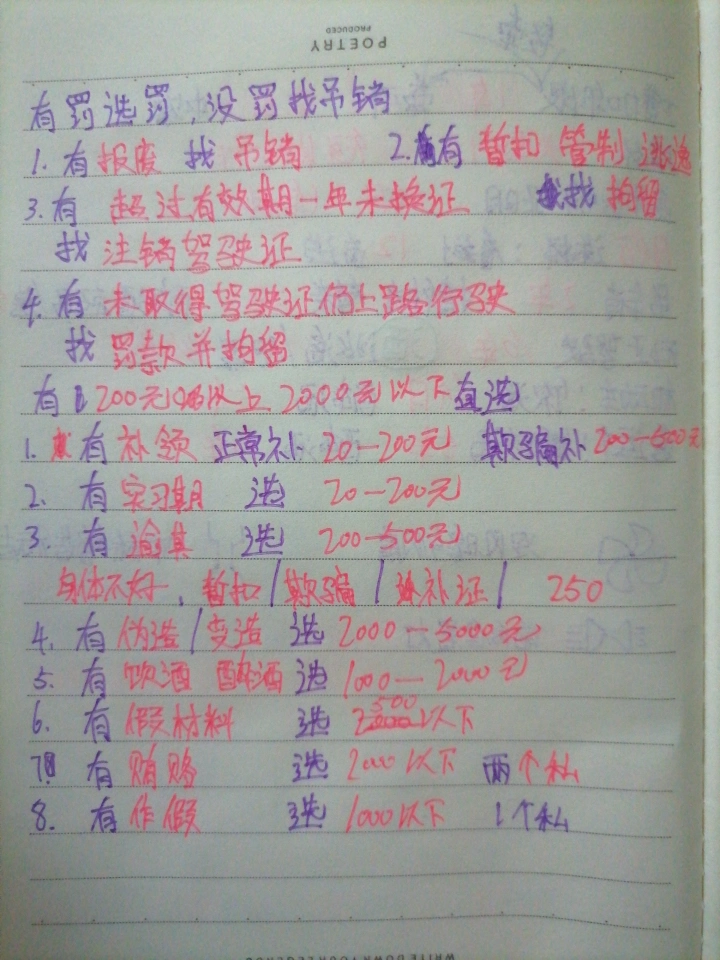 POETRY
PRODUCED
有罚选罚,没罚找吊销
1. 有报废 找 吊销 2. 有 暂扣 管制 逃逸
3. 有 超过有效期一年未换证 找 拘留
找 注销驾驶证
4. 有 未取得驾驶证仍上路行驶
找 罚款并拘留
有 200元以上 2000元以下 直选
1. 有 补领 正常补 20—200元 欺骗补 200—500元
2. 有 实习期 选 20—200元
3. 有 逾其 选 200—500元
身体不好, 暂扣/欺骗/补证/ 250
4. 有 伪造/变造 选 2000—5000元
5. 有 饮酒 醉酒 选 1000—2000元
6. 有 假材料 选 500以下
7. 有 贿赂 选 2000以下 两个私
8. 有 作假 选 1000以下 1个私